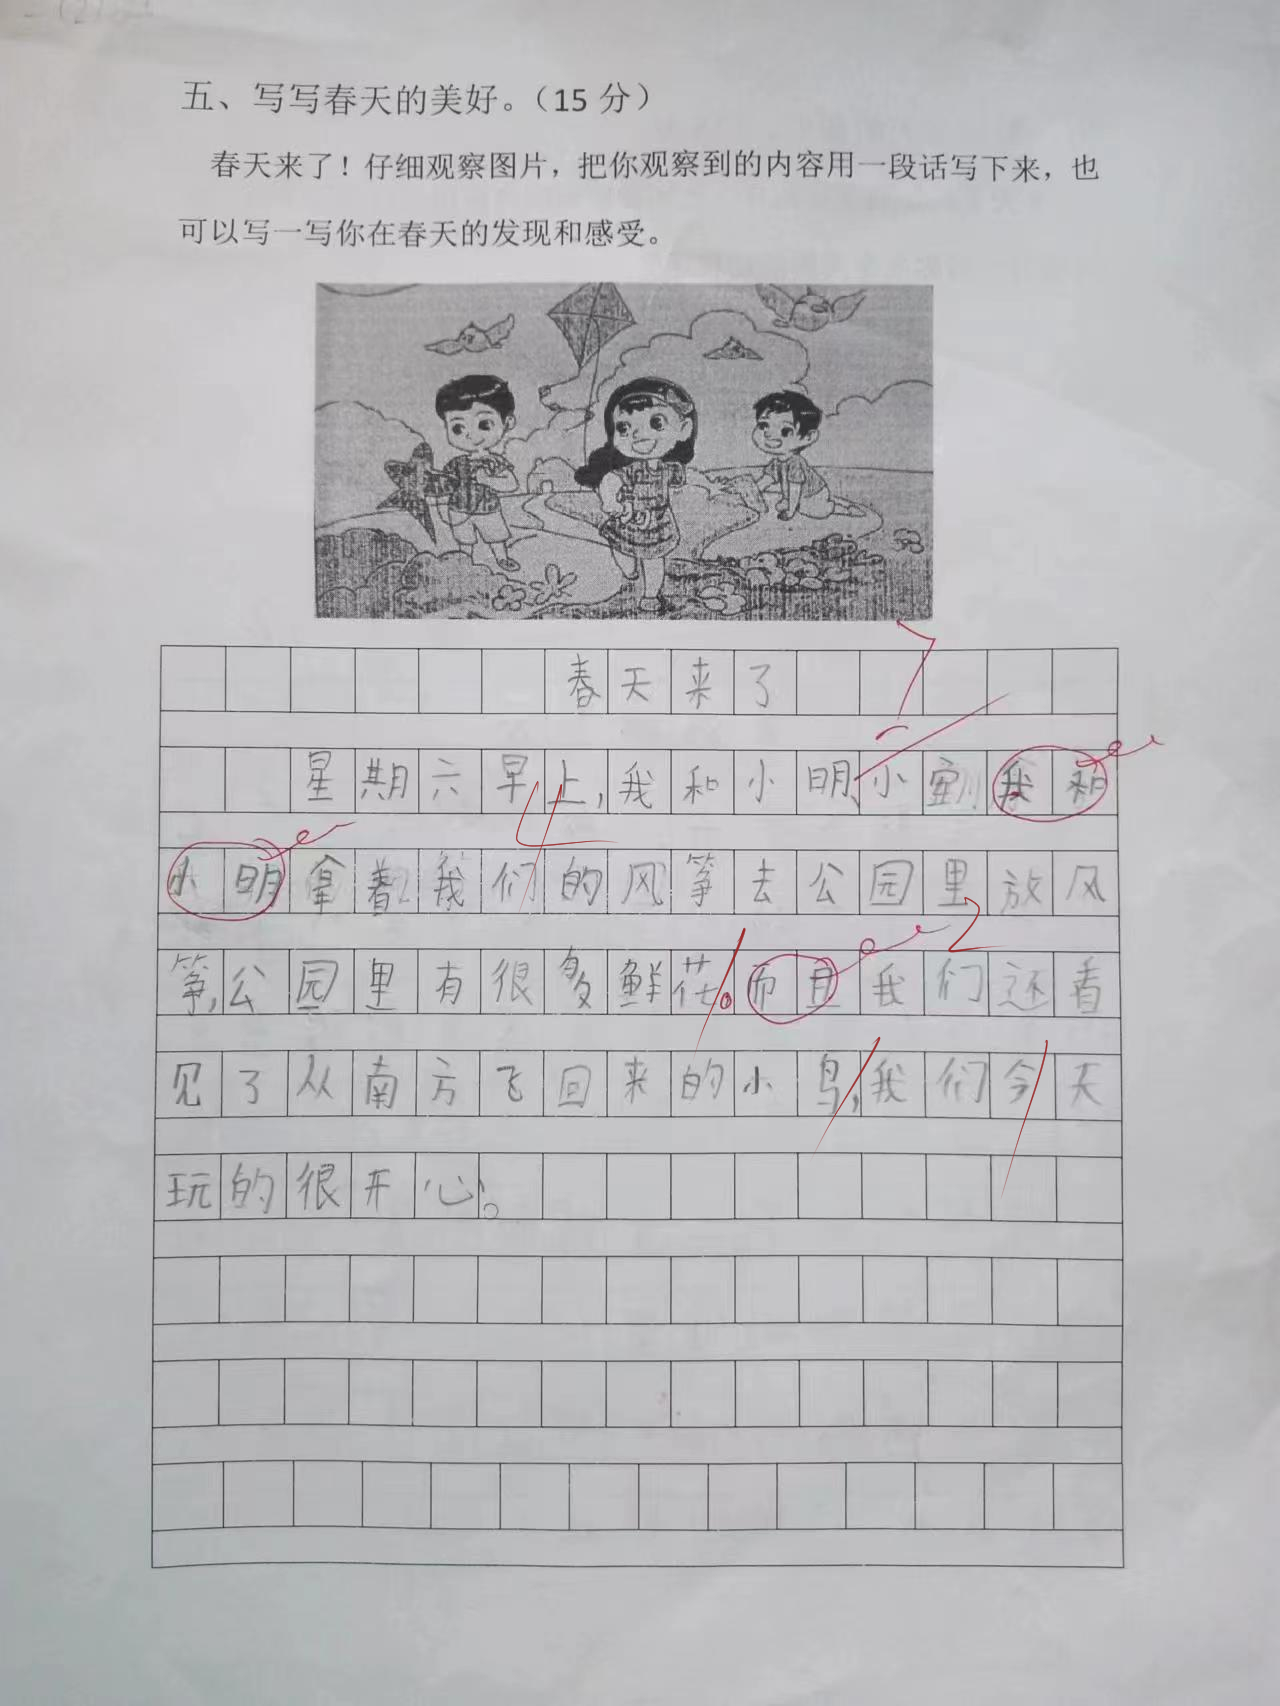 五、写写春天的美好。（15 分）
春天来了！仔细观察图片，把你观察到的内容用一段话写下来，也
可以写一写你在春天的发现和感受。
春天来了
星期六早上，我和小明、小我和
小明拿着我们的风筝去公园里放风
筝，公园里有很多鲜花。而且我们还看
见了从南方飞回来的小鸟，我们今天
玩的很开心。